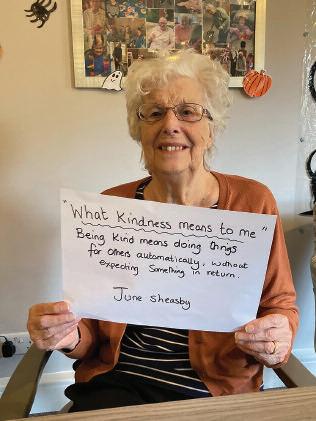 "What Kindness means to me"
Being Kind means doing things
for others automatically, without
expecting Something in return.
June Sheasby